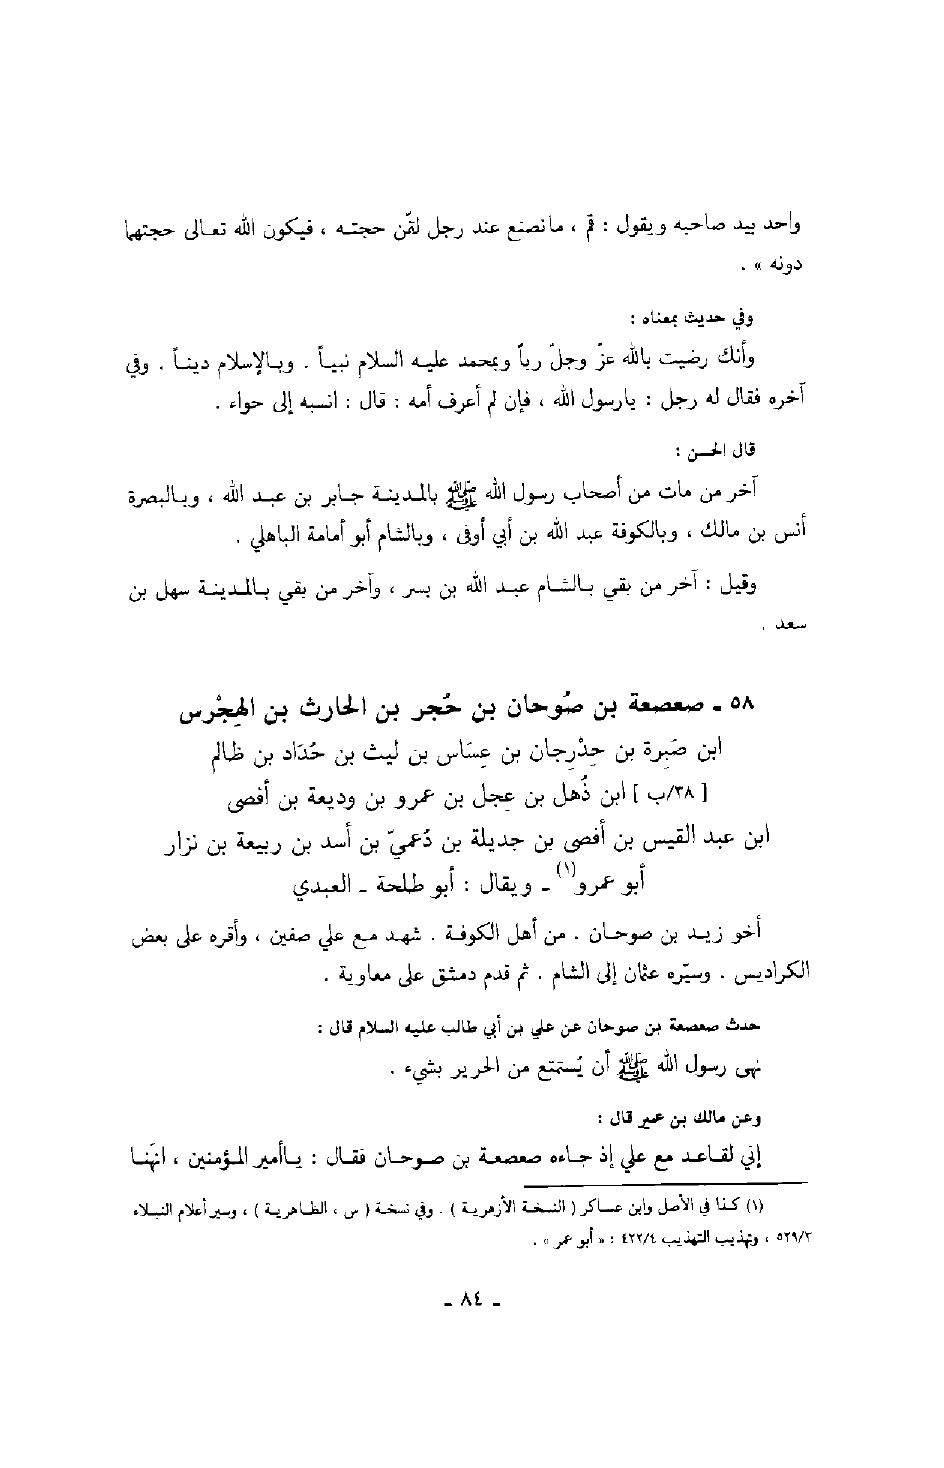 واحد بيد صاحبه ويقول : قم ، مانصنع عند رجل لقّن حجتـه ، فيكون الله تعـالى حجتهما
دونه » .
وفي حديث بمعناه :
وأنك رضيت بالله عزّ وجلّ رباً وبمحمد عليـه السلام نبيـاً . وبـالإسلام دينـاً . وفي
آخره فقال له رجل : يارسول الله ، فإن لم أعرف أمه : قال : انسبه إلى حواء .
قال الحسن :
آخر من مات من أصحاب رسول الله ﷺ بالمدينـة جـابر بن عبـد الله ، وبـالبصرة
أنس بن مالك ، وبالكوفة عبد الله بن أبي أوفى ، وبالشام أبو أمامة الباهلي .
وقيل : آخر من بقي بـالشـام عبـد الله بن بسر ، وآخر من بقي بـالمـدينـة سهل بن
سعد .
٥٨ ـ صعصعة بن صُوحان بن حُجر بن الحارث بن الهِجْرس
ابن صَبِرة بن حِدْرِجان بن عِسَاس بن ليث بن حُدَاد بن ظالم
[ ٣٨/ب ] ابن ذُهل بن عجل بن عمرو بن وديعة بن أفصى
ابن عبد القيس بن أفصى بن جديلة بن دُعميّ بن أسد بن ربيعة بن نزار
أبو عمرو(١) ـ ويقال : أبو طلحة ـ العبدي
أخو زيـد بن صوحـان . من أهل الكوفـة . شهـد مـع علي صفين ، وأقره على بعض
الكراديس . وسيّره عثمان إلى الشام . ثم قدم دمشق على معاوية .
حدث صعصعة بن صوحان عن علي بن أبي طالب عليه السلام قال :
نهى رسول الله ﷺ أن يُستمتع من الحرير بشيء .
وعن مالك بن عمير قال :
إني لقـاعـد مع علي إذ جـاءه صعصعـة بن صـوحـان فقـال : يـاأمير المـؤمنين ، انهَنـا
(١) كـذا في الأصل وابن عسـاكر ( النسخـة الأزهريـة ) . وفي نسخـة ( س ، الظـاهريـة ) ، وسير أعلام النبلاء
٥٢٩/٣ ، وتهذيب التهذيب ٤٢٢/٤ : « أبو عمر » .
ـ ٨٤ ـ